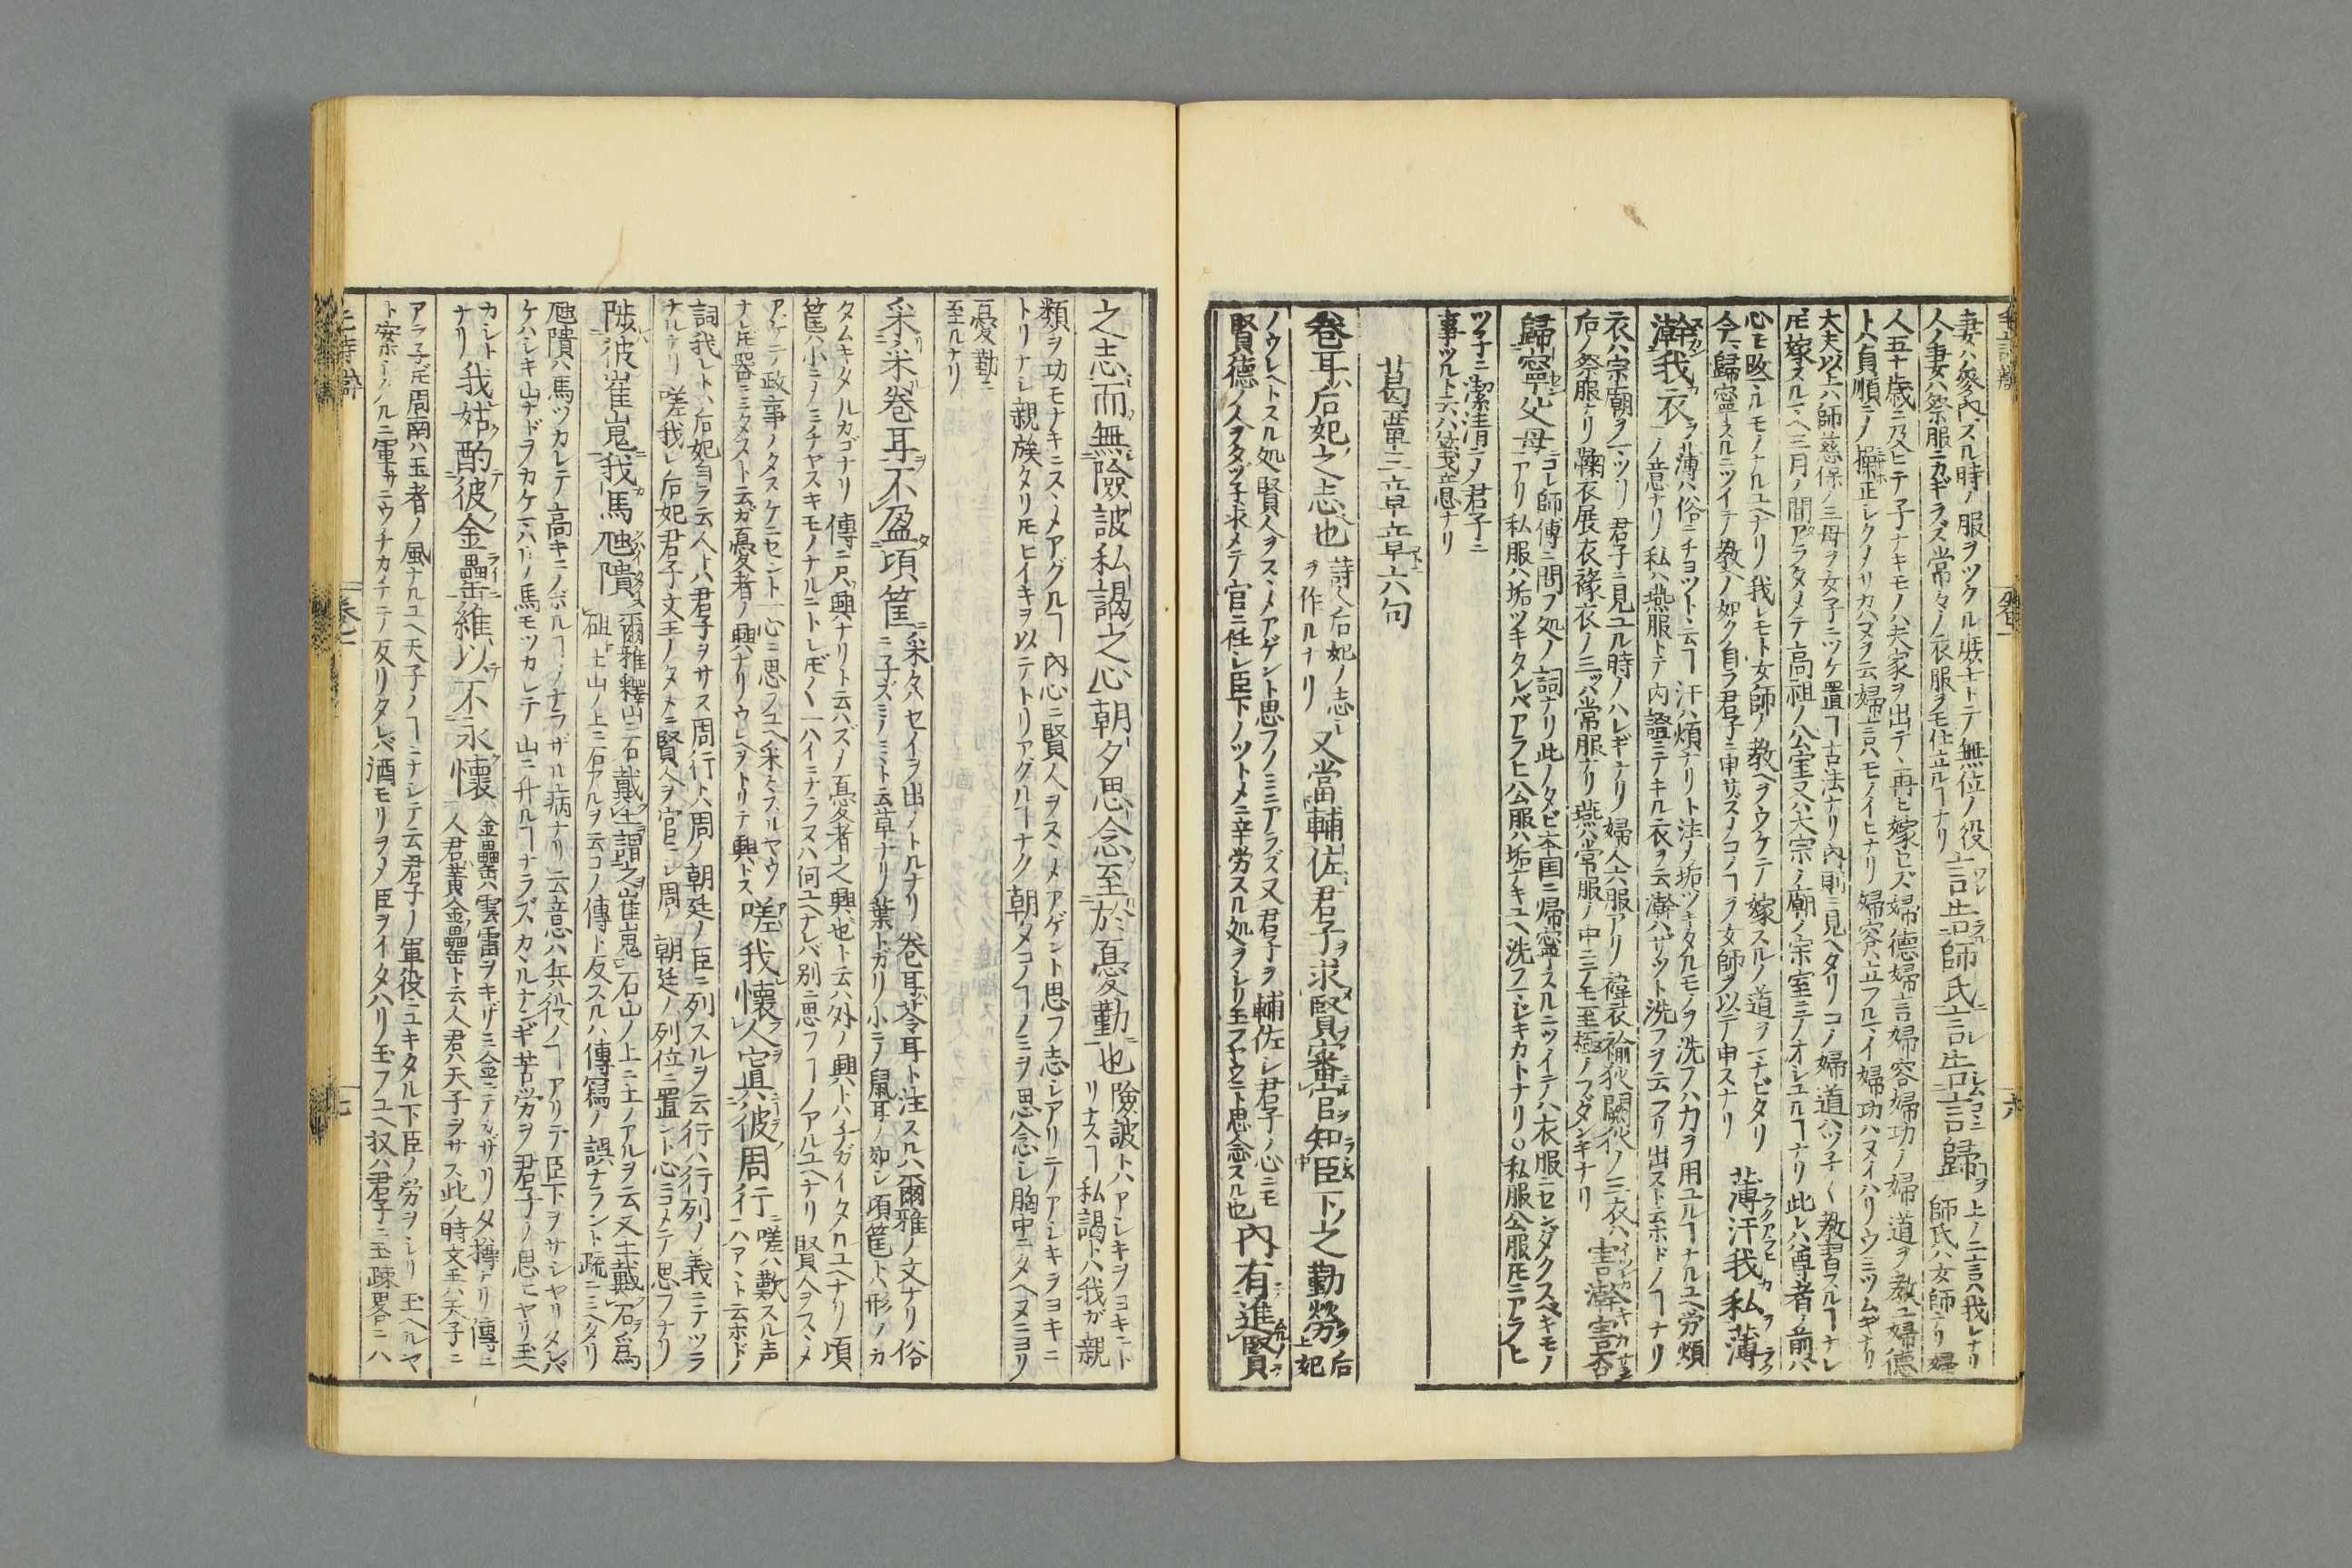 妻ハ參內スル時ノ服ヲツクル庶士トテ無位ノ役
人ノ妻ハ祭服ニカギラズ常々ノ衣服ヲモ仕立ルナリ
言告師氏言告言歸
上ノ二言ハ我レナリ
師氏ハ女師ナリ婦
人五十歲ニ及ヒテ子ナキモノハ夫家ヲ出テ再ヒ嫁セズ婦德婦言婦容婦功ノ婦道ヲ教ユ婦德
トハ貞順ニノ操正シク
大夫以上ハ師慈保ノ三母ヲ女子ニツケ置
古法ナリ內則ニ見ヘタリコノ婦道ハツ子〱教習スル
嫁スルマヘ三月ノ間アラタメテ高祖ノ公室又ハ大宗ノ廟ノ宗室ニテノオシユル
ナリ此レハ尊者ノ前
心モ改マルモノナルユヘナリ我レモト女師ノ教ヘヲウケテ嫁スルノ道ヲマナビタリ
今ハ歸寧スルニツイテ教ヘノ如ク自ラ君子ニ申サズノコノ
ヲ女師ヲ以テ申スナリ
薄汙我私薄
澣我衣
薄ハ俗ニチヨツト云
汙ハ煩ナリト注ノ垢ツキタルモノヲ洗フハ力ヲ用ユル
ナルユヘ労煩
ノ意ナリ私ハ燕服トテ內證ニテキル衣ヲ云澣ハサツト洗フヲ云
衣ハ宗廟ヲマツリ君子ニ見ユル時ノハレギナリ婦人六服アリ褘衣褕狄闕狄ノ三衣ハ
后ノ祭服ナリ鞠衣展衣褖衣ノ三ツハ常服ナリ燕ハ常服ノ中ニテモ至極ノフダンギナリ
害澣害否
歸寧父母
コレ師傅ニ問フ処ノ詞ナリ此ノタビ本国ニ帰寧スルニツイテハ衣服ニセンダクスベキモノ
アリ私服ハ垢ツキタレバアラヒ公服ハ垢ナキユヘ洗フマジキカトナリ○私服公服トモニアラヒ
ツ子ニ潔清ニノ君子ニ
事ツルト云ハ箋ノ意ナリ
葛覃三章章六句
卷耳后妃之志也
詩人后妃ノ志シ
ヲ作ルナリ
又當輔佐君子求賢審官知臣下之勤勞
后
妃
ノウヘトスル処賢人ヲスヽメアゲント思フノミニアラズ又君子ヲ輔佐シ君子ノ心ニモ
賢德ノ人ヲタヅ子求メテ官ニ任シ臣下ノツトメニ辛労スル処ヲシリ玉フヤウニト思念スル也
內有進賢
之志而無險詖私謁之心朝夕思念至於憂勤也
險詖トハアシキヲヨキニト
リナス
私謁トハ我ガ親
類ヲ功モナキニスヽメアグル
內心ニ賢人ヲスヽメアゲント思フ志シアリテノアシキヲヨキニ
トリナシ親族タリトモヒイキヲ以テトリアグル
ナク朝タコノ
ノミヲ思念シ胸中ニタヘヌニヨリ
憂勤ニ
至ルナリ
采采卷耳不盈頃筐
采々ハセイヲ出ノトルナリ卷耳ハ苓耳ト注スルハ爾雅ノ文ナリ俗
ニ子ズミノミヽト云草ナリ葉トガリ小ニノ鼠耳ノ如シ頃筐トハ形ノカ
タムキタルカゴナリ傳ニ只興ナリト云ハズノ憂者之興也ト云ハ外ノ興トハチガイタルユヘナリ頃
筐ハ小ニノミチヤスキモノナルニトレトモ〱一ハイニナラヌハ何ユヘナレバ別ニ思フ
ノアルユヘナリ賢人ヲスヽメ
アゲテ政事ノタスケニセント一心ニ思フユヘ
ナレトモ器ニミタズト云ガ憂者ノ興ナリウレヘヲトリテ興トス
嗟我懷人寘彼周行
嗟ハ歎スル声
ニハアヽト云ホドノ
詞我レトハ后妃自ラ云人トハ君子ヲサス周行トハ周ノ朝廷ノ臣ニ列スルヲ云行ハ行列ノ義ニテツラ
ナルナリ嗟我レ后妃君子文王ノタメニ賢人ヲ官ニシ周ノ朝廷ノ列位ニ置ント心ニコメテ思フナリ
陟彼崔嵬我馬虺隤
爾雅釋山ニ石戴土謂之崔嵬石山ノ上ニ土ノアルヲ云又土戴石爲
砠土山ノ上ニ石アルヲ云コノ傳ト反スルハ傳寫ノ誤ナラント疏ニミヘタリ
虺隤ハ馬ツカレテ高キニノボル
ノナラザル病ナリ云意ハ兵役ノ
アリテ臣下ヲサシヤリタレバ
ケハシキ山ナドヲカケマハリノ馬モツカレテ山ニ升ル
ナラズカヽルナンギ苦労ヲ君子ノ思ヒヤリ玉ヘ
カシト
ナリ
我姑酌彼金罍維以不永懷
金罍ハ雲雷ヲキザミ金ニテカザリノタル樽ナリ傳ニ
人君黃金罍ト云人君ハ天子ヲサス此ノ時文王ハ天子ニ
アラ子トモ周南ハ王者ノ風ナルユヘ天子ノ
ニナシテ云君子ノ軍役ニユキタル下臣ノ労ヲシリ玉ヘルヤ
ト案ホシクルニ軍サニウチカチテ反リタレバ酒モリヲノ臣ヲイタハリ玉フユヘ扠ハ君子ニ玉疎畧ニハ
卷一
七